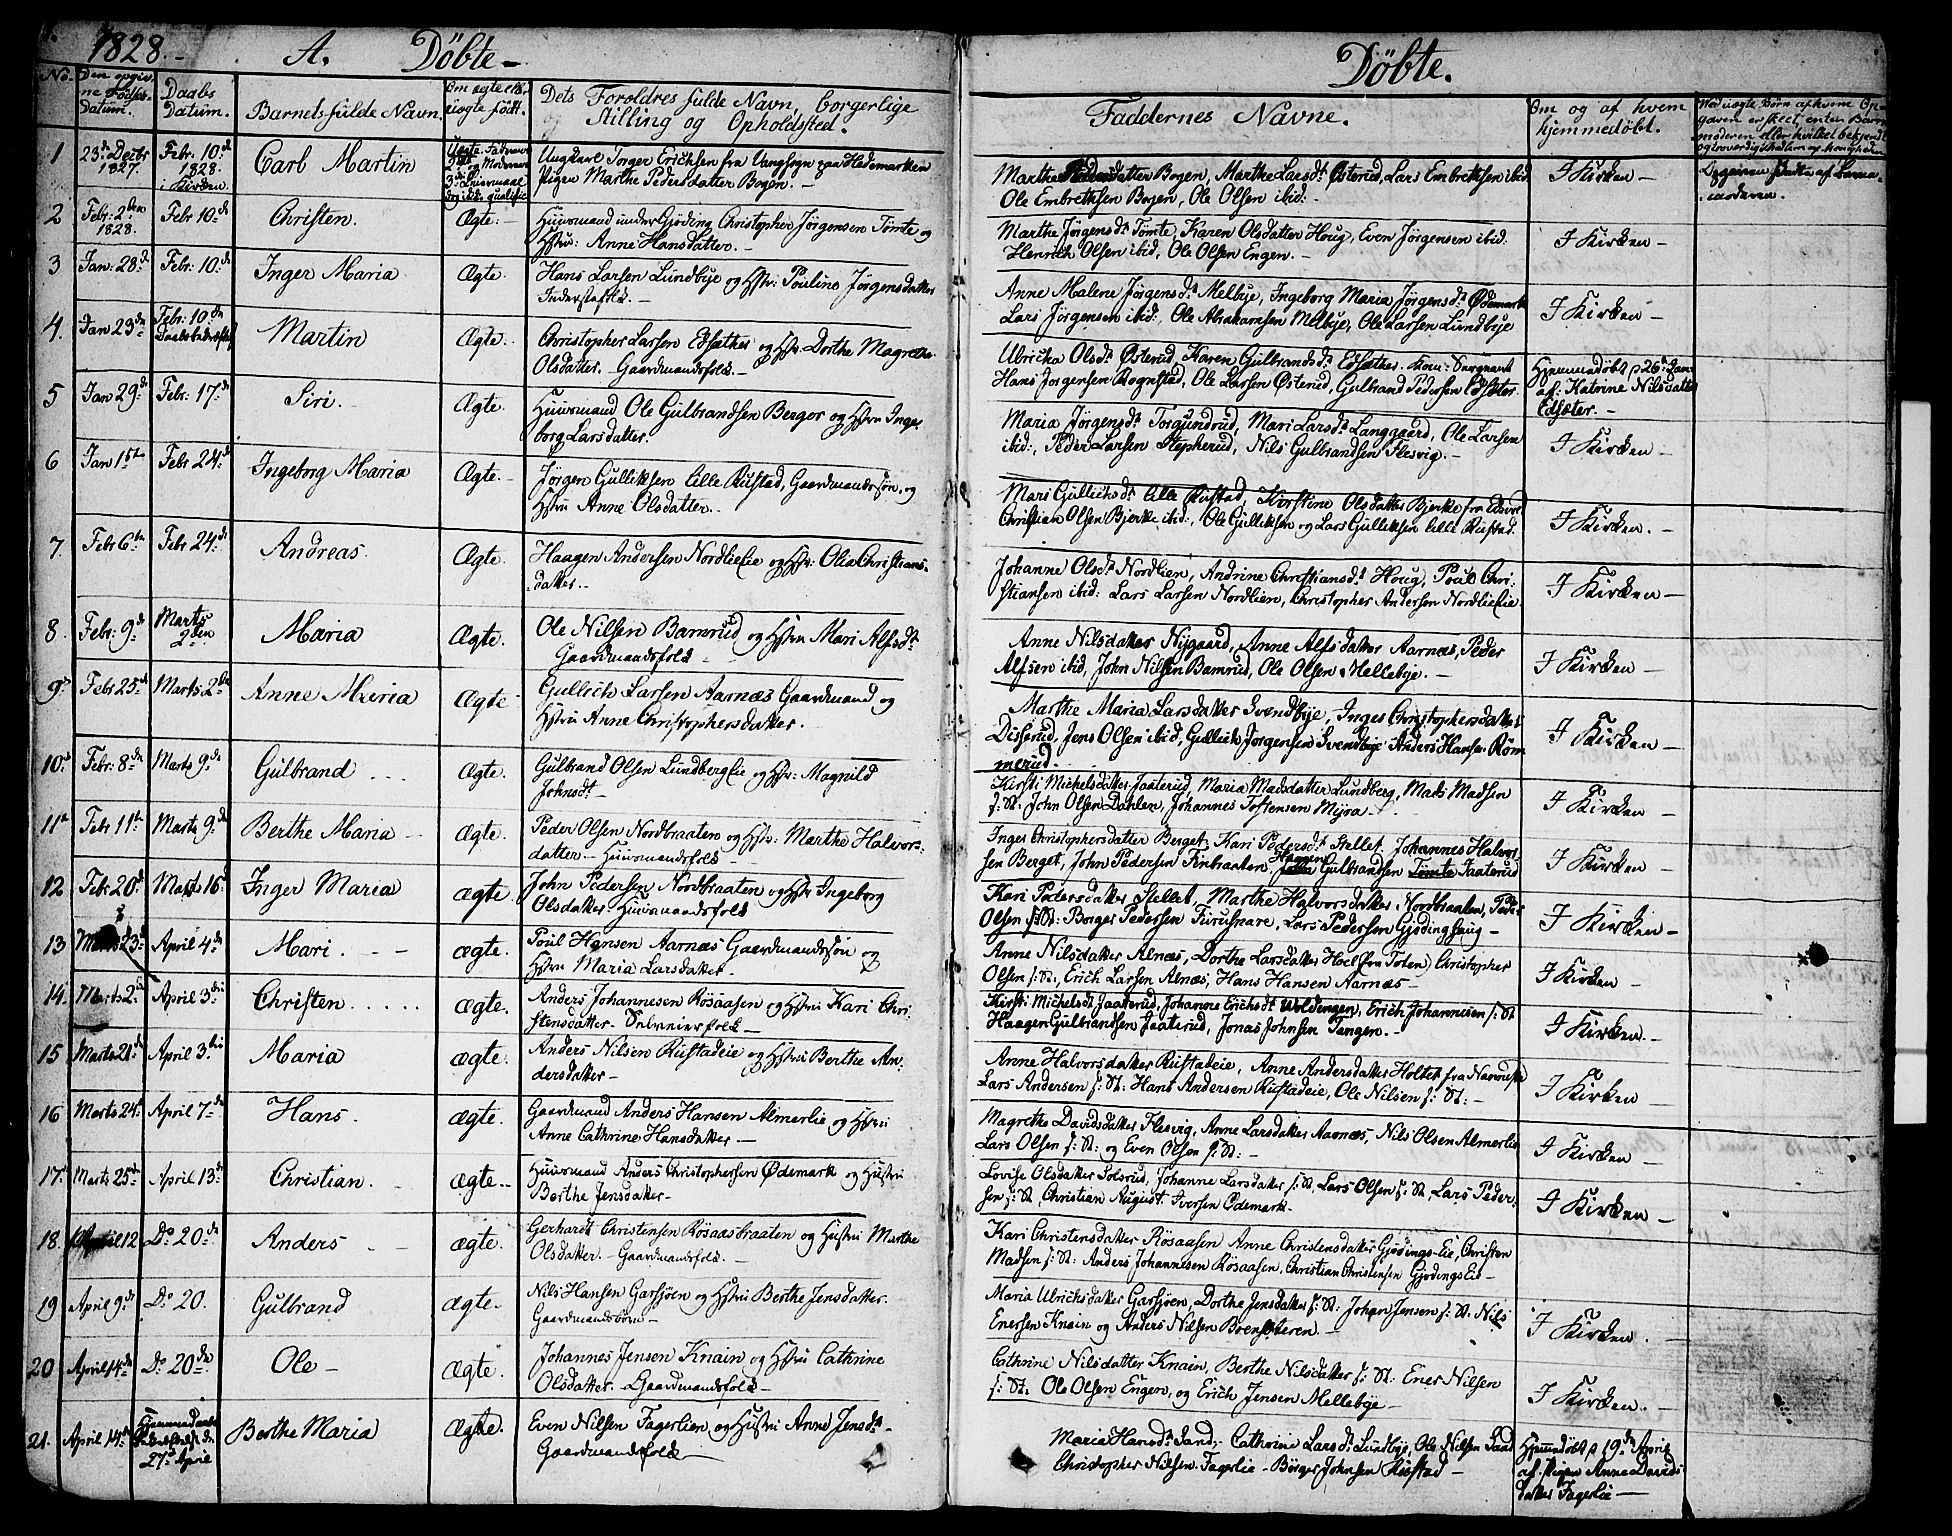 1828.- A. Döbte-
No. Den opgiv-
ne Födsels-
Datum. Daabs
Datum. Barnets fulde Navn. Om ægte ell.
uægte födt. Dets Foreldres fulde Navn, borgerlige
Stilling og Opholdssted.
1 23d Decbr
1827. Febr. 10de
1828.
i Kirken Carl Martin Uægte. Ungkarl Torger Erichsen fra Vangsogn paa Hedemarken
Pigen Marthe Pedersdatter Bogen.-
2 Febr. 2den
1828. Febr 10de Christen. Ægte- Huusmand under Gjöding Christopher Jörgensen Tömte og
Hstru: Anne Hansdatter.-
3 Jan: 28de Febr: 10de Inger Maria Ægte. Hans Larsen Lundbye og Hstr: Pouline Jörgensdatter
Inderstefolk.-
4. Jan 23de Febr: 10de Martin Ægte. Christopher Larsen Edsæther og Hstr. Dorthe Magrethe
Olsdatter. Gaardmandsfolk-
5 Jan 29de Febr: 17de Siri.- Ægte. Huusmand Ole Gulbrandsen Berger og Hstru Inge-
borg Larsdatter.
6 Jan 1ste Febr 24de Ingeborg Maria Ægte.- Jörgen Gulliksen Lille Rustad, Gaardmandssön, og
Hstru Anne Olsdatter.-
7 Febr 6te Febr 24de Andreas. Ægte. Haagen Andersen Nordlieeie og Hstr. Olea Christians-
datter.-
8. Febr: 9de Marts
2den Maria Ægte. Ole Nilsen Bamrud og Hstru Mari Alfsdr
Gaardmandsfolk-
9de Febr 25de Marts 2den Anne Maria Ægte Gullich Larsen Aarnæs Gaardmand og
Hstru Anne Christophersdatter.
10de Febr: 8de Marts 9de Gulbrand Ægte. Gulbrand Olsen Lundbergeie og Hstr: Magnild
Johnsdt-
11te Febr 11te Marts 9de Berthe Maria - Ægte. Peder Olsen Nordbraaten og Hstr: Marthe Halvors-
datter- Huusmandsfolk
12 Febr 20de Marts 16de Inger Maria Ægte. John Pedersen Nordbraaten og Hstr Ingeborg
Olsdatter. Huusmandsfolk
13 Marts 23de April 4de Mari. Ægte. Poul Hansen Aarnæs Gaardmandssön og
Hstru Maria Larsdatter-
14. Marts 2de April 3die Christen Ægte. Anders Johannesen Rösaasen og Hstru Kari Chri-
stensdatter- Selveierfolk-
15 Marts 21de April 3die Maria Ægte. Anders Nilsen Rustadeie og Hstru Berthe An-
dersdatter-
16 Marts 24de April 7de Hans. Ægte. Gaardmand Anders Hansen Almerlie og Hstru
Anne Cathrine Hansdatter-
17. Marts 25de April 13de Christian. Ægte.- Huusmand Anders Christophersen Ödemark og Hustru
Berthe Jensdatter-
18. April 12 Do 20de Anders Ægte. Gerhardt Christensen Rösaasbraaten og Hustru Marthe
Olsdatter.- Gaardmandsfolk.-
19 April 9de Do 20. Gulbrand Ægte. Nils Hansen Garsjöen og Hstru Berthe Jensdatter.
20 April 14de Do 20de Ole- Ægte. Johannes Jensen Knain og Hstru Cathrine
Olsdatter. Gaardmandsfolk-
21. April 14de 27de April Berthe Maria Ægte. Even Nilsen Fagerlien og Hustru Anne Jensdr-
Gaardmandsfolk
Döbte.
Faddernes Navne. Om og af hvem
hjemmedöbt. Ved uægte Börn af hvem Op-
gaven er skeet, enten Barne-
moderen eller hvilket bekjendt
Marthe Pedersdatter Bogen, Marthe Larsdr Österud, Lars Embrethsen ibid
Ole Embrethsen Bogen, Ole Olsen ibid:- I Kirken- Opgaven skeete af Barne-
moderen.
Marthe Jörgensdr Tömte, Karen Olsdatter Houg, Even Jörgensen ibid.
Henrich Olsen ibid, Ole Olsen Engen.- I Kirken-
Anne Malene Jörgensdr Melbye, Ingeborg Maria Jörgensdr Ödemark
Lars Jörgensen ibid:, Ole Abrahamsen Melbye, Ole Larsen Lundbye I Kirken-
Ulricka Olsdr Österud, Karen Gulbrandsdr Edsæther. Kom: Sergeant
Hans Jorgensen Rognstad, Ole Larsen Österud, Gulbrand Pedersen Edsæter. Hjemmedöbt d 26de Jan
af: Katrine Nilsdatter
Edsæter.-
Maria Jörgensdr Torgundrud, Mari Larsdr Langgaard, Ole Larsen
ibid:, Peder Larsen Stepherud, Nils Gulbrandsen Flesvig.- I Kirken-
Mari Gullichsdr Lille Rustad, Kirstine Olsdatter Bjerke fra Edsvol
Christian Olsen Bjerke ibid:, Ole Gulliksen og Lars Gulliksen Lille Rustad. I Kirken.-
Johanne Olsdr Nordlien, Andrine Christiansdr Houg, Poul Chri-
stiansen ibid: Lars Larsen Nordlien, Christopher Andersen Nordlieeie. I Kirken-
Anne Nilsdatter Nygaard, Anne Alfsdatter Aarnæs, Peder
Alfsen ibid, John Nilsen Bamrud, Ole Olsen Mellebye.- I Kirken-
Marthe Maria Larsdatter Svendbye, Inger Christophersdatter
Disserud, Jens Olsen ibid, Gullich Jorgensen Svendbye Anders Hansen Röm-
merud. I Kirken-
Kirsti Michelsdatter Jaaterud, Maria Madsdatter Lundberg, Mads Madsen
s: St: John Olsen Dahlen, Johannes Tostensen Myra- I Kirken-
Inger Christophersdatter Berget, Kari Pedersdr Stellet. Johannes Halvor-
sen Berget, John Pedersen Finbraaten. Haagen Gulbrandsen Tömte Jaaterud I Kirken-
Kari Pedersdatter Stellet Marthe Halvorsdatter Nordbraaten, Peder
Olsen s: St: Borger Pedersen Furusnare, Lars Pedersen Gjödinghaug- I Kirken-
Anne Nilsdatter Alnæs, Dorthe Larsdatter Hoel (fra Toten) Christopher
Olsen s: St:, Erich Larsen Alnæs, Hans Hansen Aarnæs- I Kirken-
Kirsti Michelsdt Jaaterud, Johanne Erichsdt Woldengen, Erich Johannesen s: St
Haagen Gulbrandsen Jaaterud, Jonas Johnsen Tangen.- I Kirken.-
Anne Halvorsdatter Rustadeie, Anne Andersdatter Holtet fra Nannestad
Lars Andersen s: St: Hans Andersen Rustadeie, Ole Nilsen s: St:- I Kirken-
Magrethe Davidsdatter Flesvig, Anne Larsdatter Aarnæs, Nils Olsen Almerlie
Lars Olsen s: St: og Even Olsen s: St:- I Kirken-
Lovise Olsdatter Solsrud, Johanne Larsdatter s: St, Lars Olsen s: St Lars Peder-
sen s: St, Christian August Iversen Ödemark- I Kirken-
Kari Christensdatter Rösaasen Anne Christensdatter Gjödings-Eie, Christen
Madsen s: St: Anders Johannesen Rösaasen, Christian Christensen Gjödings Eie- I Kirken-
Maria Ulrichsdatter Garsjöen, Dorthe Jensdatter s: St: Johan Jensen s: St: Nils
Enersen Knain og Anders Nilsen Brensæteren- I Kirken.-
Cathrine Nilsdatter Knain, Berthe Nilsdatter s: St: Ener Nilsen
s: St: Ole Olsen Engen, og Erich Jensen Mellebye- I Kirken.-
Maria Hansdr Sand,- Cathrine Larsdr Lundbye, Ole Nilsen Sand
Christopher Nilsen Fagerlie- Börger Johnsen Rustad- Hjemdöbt d 19de April
af Pigen Anne Davids-
datter Fagerlie-